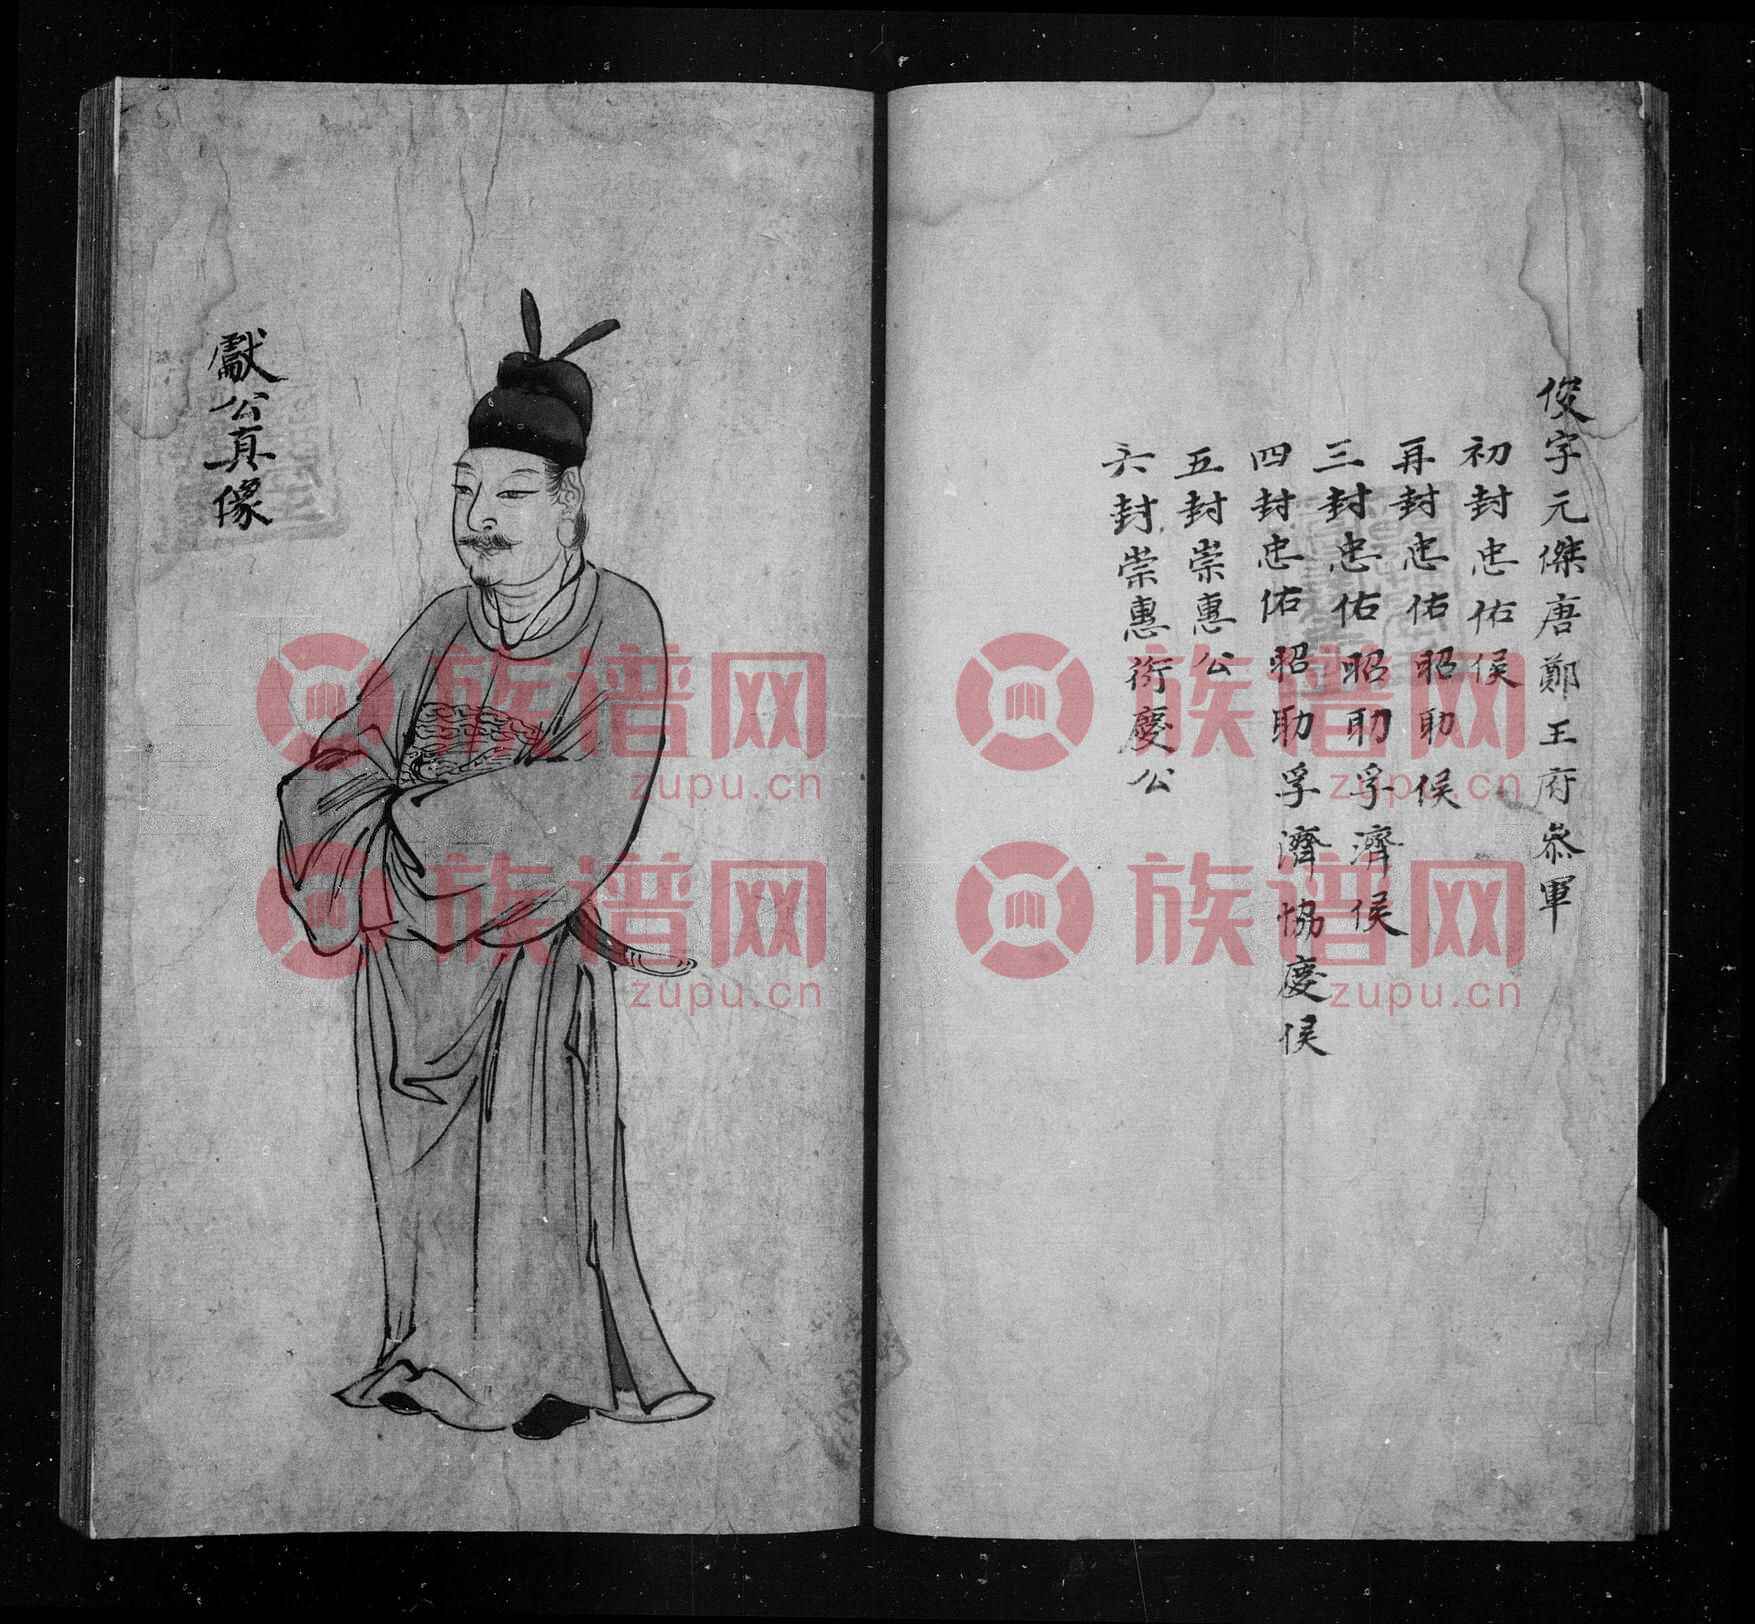 俊字元傑唐鄭王府叅軍
初封忠佑侯
再封忠佑昭助侯
三封忠佑昭助孚濟侯
四封忠佑昭助孚濟協慶侯
五封崇惠公
六封崇惠衍慶公
獻公真像
族谱网
zupu.cn
族谱网
zupu.cn
族谱网
zupu.cn
族谱网
zupu.cn